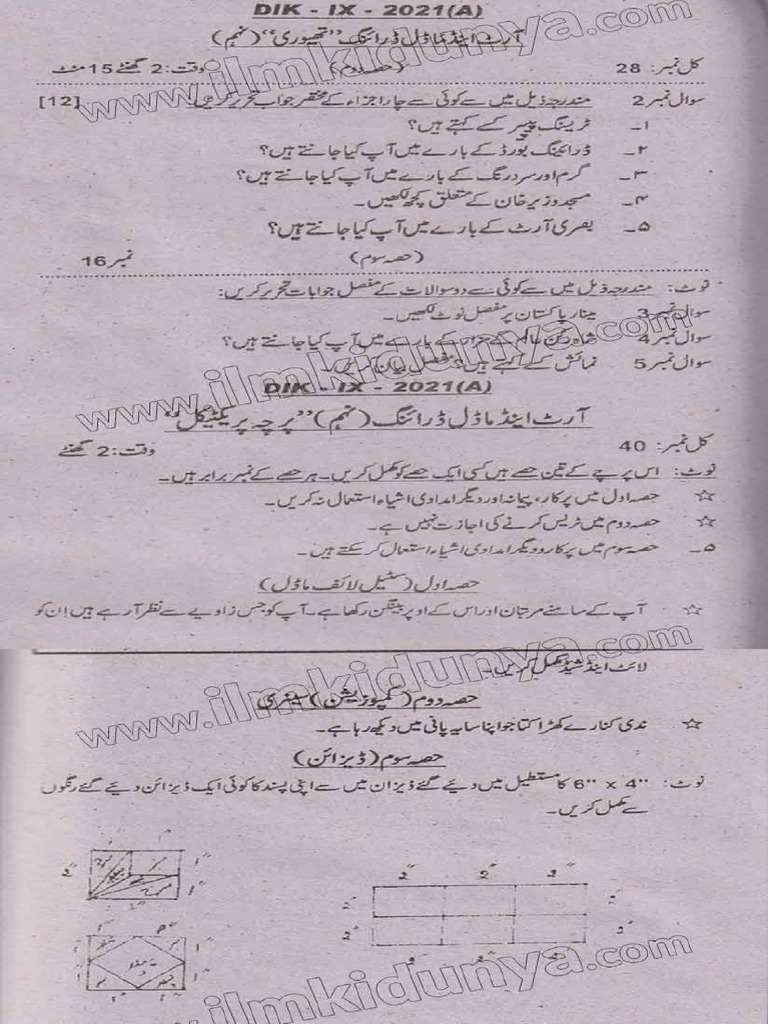 DIK - IX - 2021(A)
آرٹ اینڈ ماڈل ڈرائنگ "تھیوری" (نہم)
کل نمبر: 28 (حصہ دوم) وقت: 2 گھنٹے 15 منٹ
سوال نمبر 2 مندرجہ ذیل میں سے کوئی سے چار اجزاء کے مختصر جواب تحریر کریں۔ [12]
۱۔ ٹریسنگ پیپر کسے کہتے ہیں؟
۲۔ ڈرائینگ بورڈ کے بارے میں آپ کیا جانتے ہیں؟
۳۔ گرم اور سرد رنگ کے بارے میں آپ کیا جانتے ہیں؟
۴۔ مسجد وزیر خان کے متعلق کچھ لکھیں۔
۵۔ بصری آرٹ کے بارے میں آپ کیا جانتے ہیں؟
(حصہ سوم) نمبر 16
نوٹ: مندرجہ ذیل میں سے کوئی سے دو سوالات کے مفصل جوابات تحریر کریں:
سوال نمبر 3 مینار پاکستان پر مفصل نوٹ لکھیں۔
سوال نمبر 4 شاہ رکن عالم کے مزار کے بارے میں آپ کیا جانتے ہیں؟
سوال نمبر 5 نمائش کسے کہتے ہیں؟ مفصل بیان کریں۔
DIK - IX - 2021(A)
آرٹ اینڈ ماڈل ڈرائنگ (نہم) "پرچہ پریکٹیکل"
کل نمبر: 40 وقت: 2 گھنٹے
نوٹ: اس پرچے کے تین حصے ہیں کسی ایک حصے کو مکمل کریں۔ ہر حصے کے نمبر برابر ہیں۔
☆ حصہ اول میں پرکار، پیمانہ اور دیگر امدادی اشیاء استعمال نہ کریں۔
☆ حصہ دوم میں ٹریس کرنے کی اجازت نہیں ہے۔
۵۔ حصہ سوم میں پرکار و دیگر امدادی اشیاء استعمال کر سکتے ہیں۔
حصہ اول (سٹیل لائف ماڈل)
☆ آپ کے سامنے مرتبان اور اس کے اوپر بینگن رکھا ہے۔ آپ کو جس زاویے سے نظر آ رہے ہیں ان کو
لائٹ اینڈ شیڈ مکمل کریں۔
حصہ دوم (کمپوزیشن) سینری
☆ ندی کنارے کھڑا کتا جو اپنا سایہ پانی میں دیکھ رہا ہے۔
حصہ سوم (ڈیزائن)
نوٹ: 6" x 4" کا مستطیل میں دیئے گئے ڈیزان میں سے اپنی پسند کا کوئی ایک ڈیزائن دیئے گئے رنگوں
سے مکمل کریں۔
2" 2" 2"
2" 2"
www.ilmkidunya.com
www.ilmkidunya.com
www.ilmkidunya.com
www.ilmkidunya.com